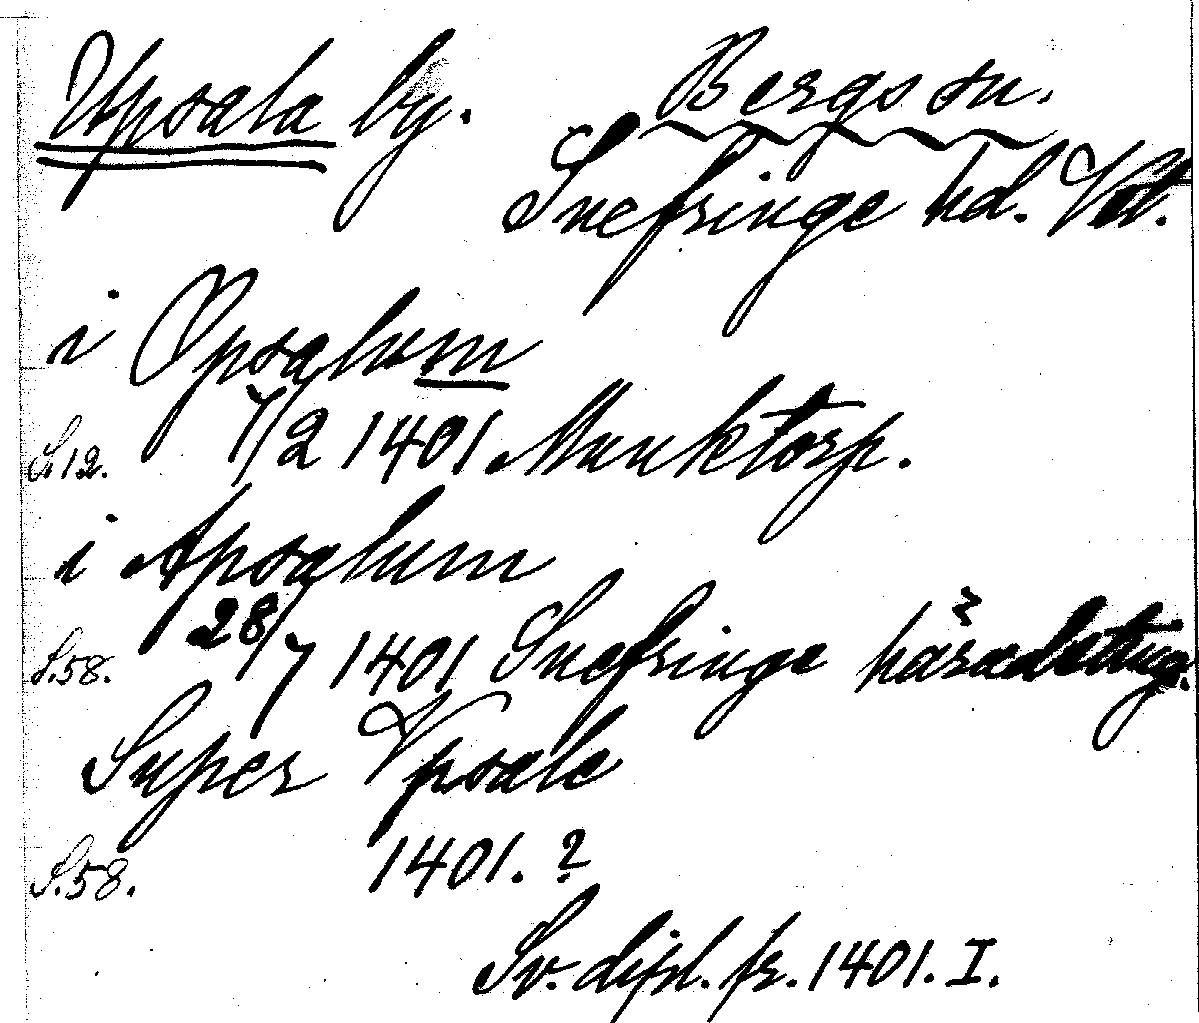 Upsala by. Bergs sn.
Snefringe hd. Vstl.
i Opsalum
S. 12. 7/2 1401 Munktorp.
i Apsalum
S. 58. 28/7 1401 Snefringe häradsting.
Super Vpsale
S. 58. 1401. ?
Sv. dipl. fr. 1401. I.